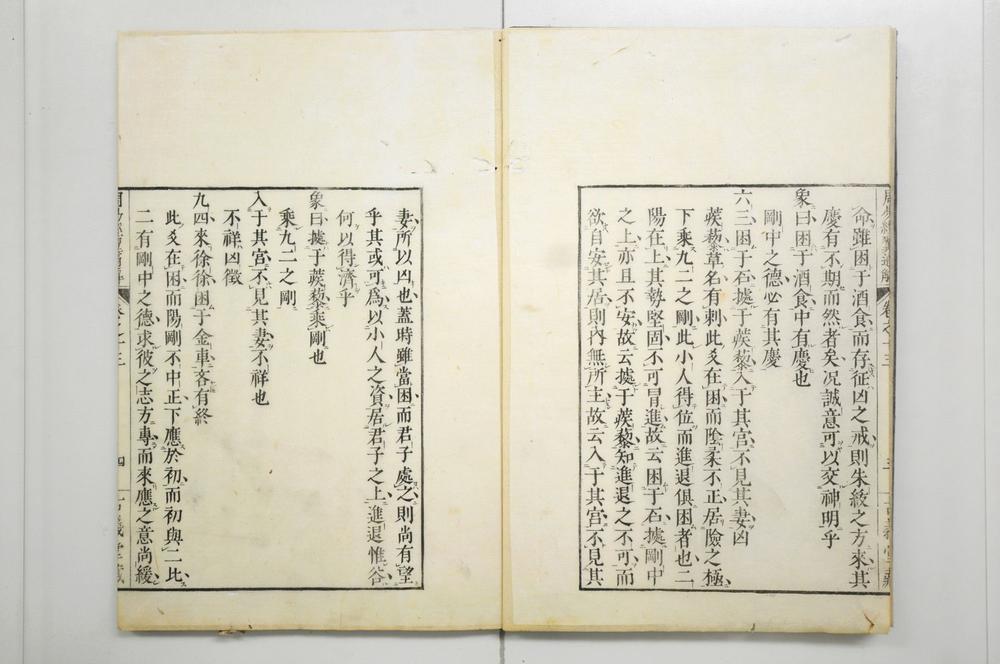 命雖困于酒食而存征凶之戒則朱紱之方來其
慶有不期而然者矣况誠意可以交神明乎
象曰困于酒食中有慶也
剛中之德必有其慶
六三困于石據于蒺藜入于其宮不見其妻凶
蒺藜草名有刺此爻在困而陰柔不正居險之極
下乘九二之剛此小人得位而進退俱困者也二
陽在上其勢堅固不可冐進故云困于石據剛中
之上亦且不安故云據于蒺藜知進退之不可而
欲自安其居則內無所主故云入于其宮不見其
妻所以凶也蓋時雖當困而君子處之則尚有望
乎其或可爲以小人之資居君子之上進退惟谷
何以得濟乎
象曰據于蒺藜乘剛也
乘九二之剛
入于其宮不見其妻不祥也
不祥凶徵
九四來徐徐困于金車吝有終
此爻在困而陽剛不中正下應於初而初與二比
二有剛中之德求彼之志方專而來應之意尚緩